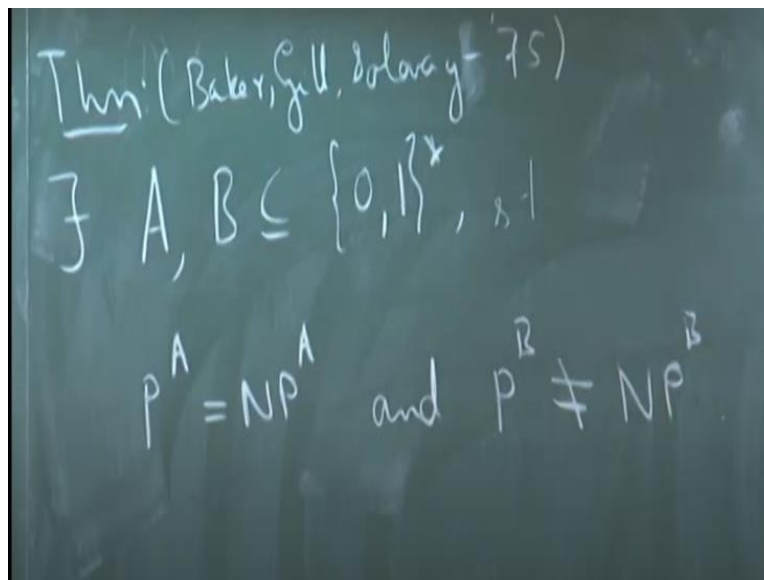 Thm: (Baker, Gill, Solovay - '75)
∃ A, B ⊆ {0,1}*, st
P^A = NP^A and P^B ≠ NP^B.